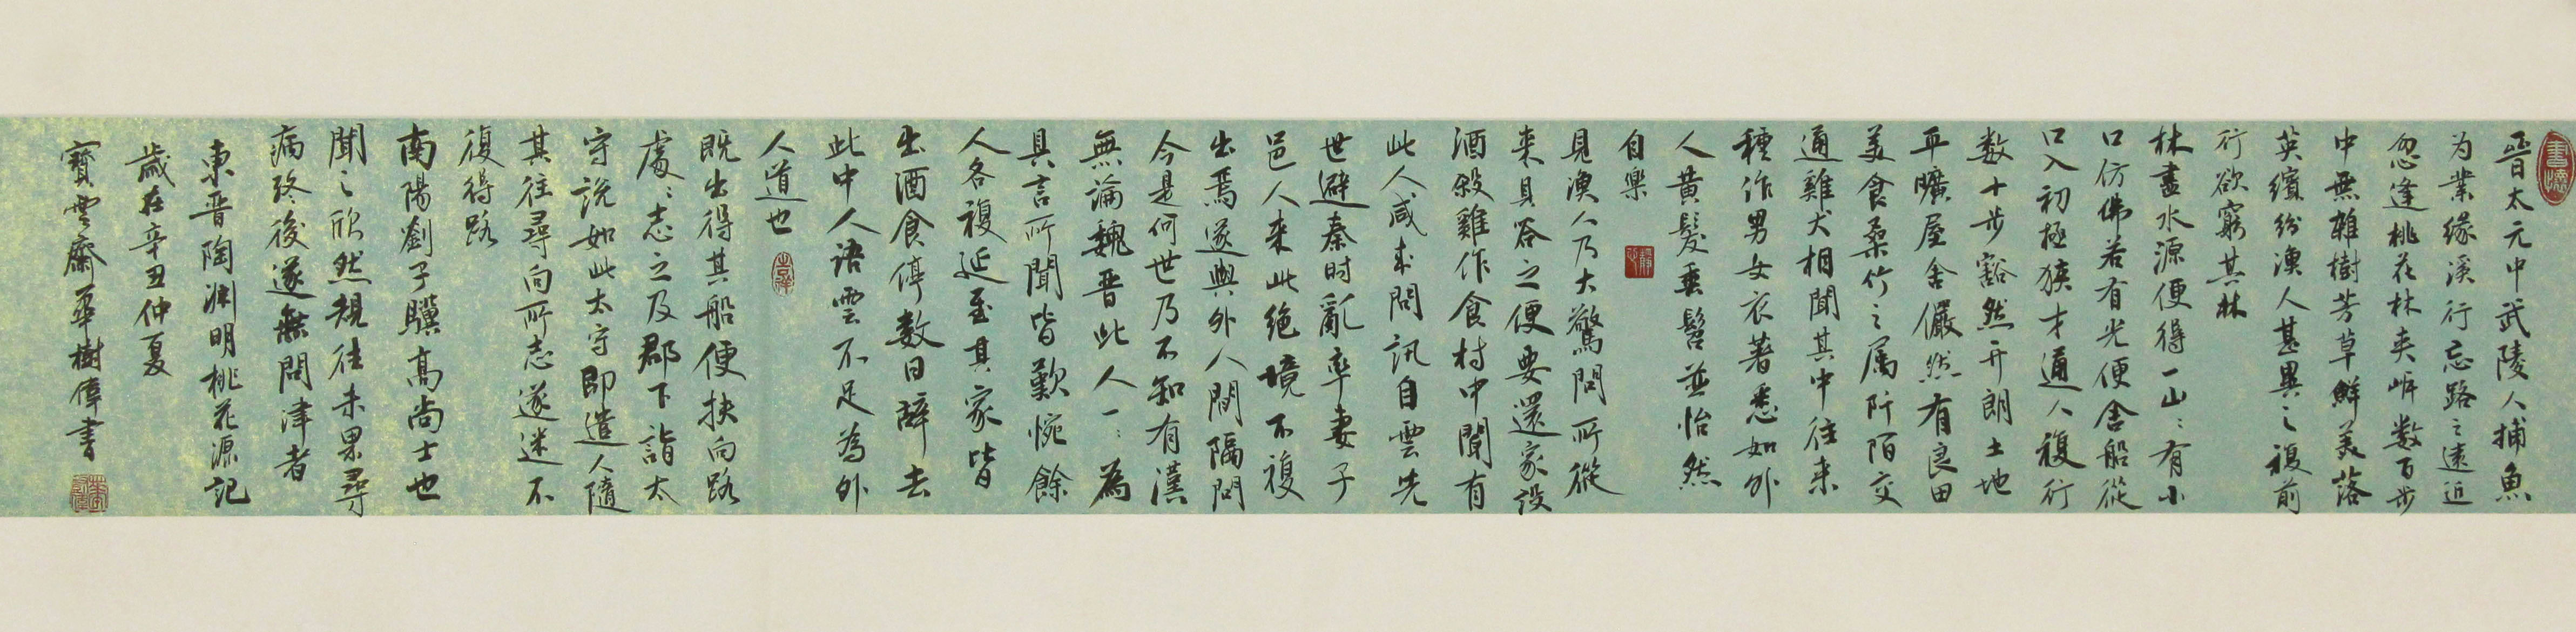 晉太元中武陵人捕魚
为業缘溪行忘路之遠近
忽逢桃花林夹岸数百步
中無雜樹芳草鮮美落
英繽紛漁人甚異之複前
行欲窮其林
林盡水源便得一山山有小
口仿佛若有光便舍船從
口入初極狹才通人複行
数十步豁然开朗土地
平曠屋舍儼然有良田
美食桑竹之属阡陌交
通雞犬相聞其中往来
種作男女衣著悉如外
人黄髮垂髫並怡然
自樂
見漁人乃大驚問所從
来具答之便要還家設
酒殺雞作食村中聞有
此人咸来問訊自雲先
世避秦时亂率妻子
邑人来此绝境不複
出焉遂與外人間隔問
今是何世乃不知有漢
無論魏晋此人一一為
具言所聞皆歎惋餘
人各複延至其家皆
出酒食停数日辭去
此中人語雲不足為外
人道也
既出得其船便扶向路
處處志之及郡下詣太
守說如此太守即遣人隨
其往尋向所志遂迷不
復得路
南陽劉子驥高尚士也
聞之欣然規往未果尋
病终後遂無問津者
東晋陶渊明桃花源記
歲在辛丑仲夏
寶雲齋華樹偉書